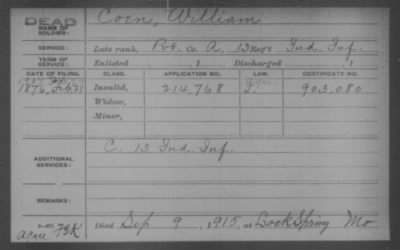 DEAD
NAME OF SOLDIER: Coen, William
SERVICE: Late rank, Pvt. Co. A, 13 Ind. Inf.
TERM OF SERVICE: Enlisted , 1 Discharged , 1
DATE OF FILING. CLASS. APPLICATION NO. LAW. CERTIFICATE NO.
1876, Feb 21 Invalid, 214,768 F. 903,080
Widow,
Minor,
ADDITIONAL SERVICES: C. 13 Ind. Inf.
REMARKS:
Died Sep 9, 1915, at Lock Spring Mo